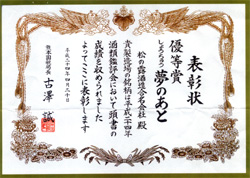 表彰状
優等賞
しょうちゅう 夢のあと
松の露酒造合名会社 殿
貴製造場の銘柄は平成二十四年
酒類鑑評会において頭書の
成績を収められました
よってここに表彰します
平成二十四年四月二十日
熊本国税局長
古澤